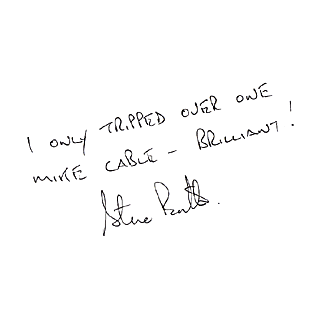 I ONLY TRIPPED OVER ONE
MIKE CABLE - BRILLIANT!
Steve